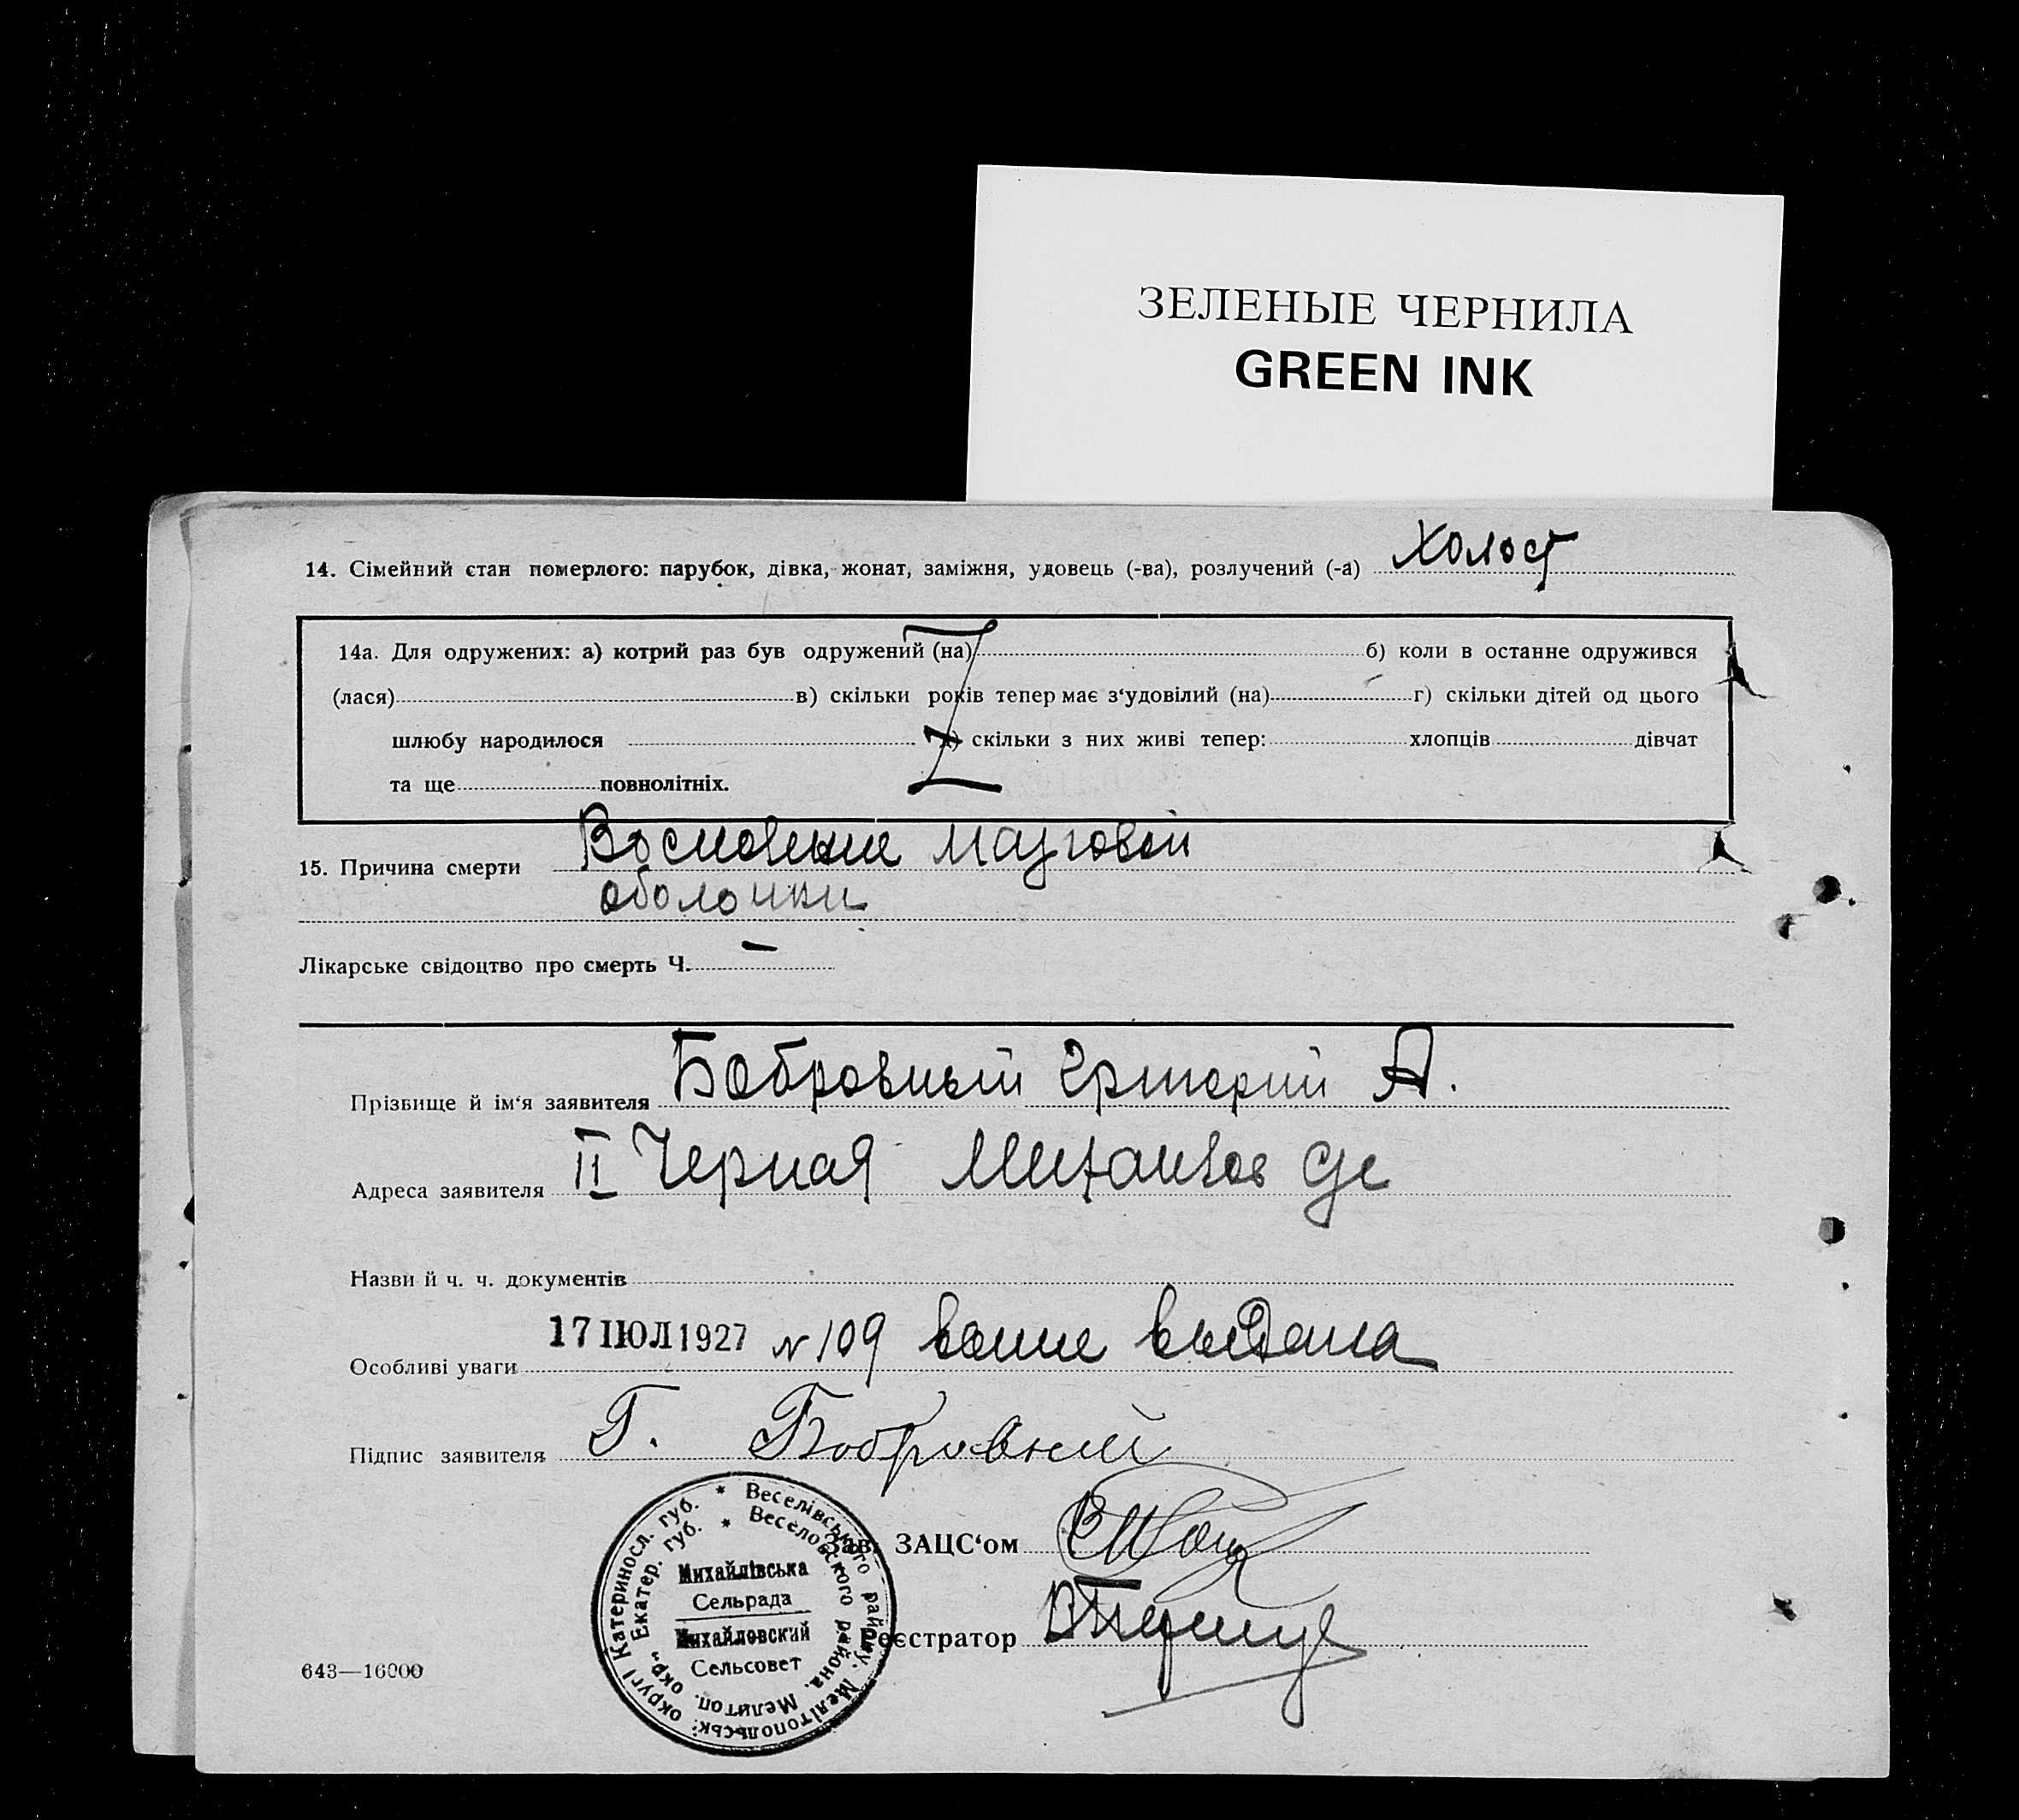 ЗЕЛЕНЫЕ ЧЕРНИЛА
GREEN INK
14. Сімейний стан померлого: парубок, дівка, жонат, заміжня, удовець (-ва), розлучений (-а) Холост
14а. Для одружених: а) котрий раз був одружений (на) б) коли в останнє одружився
(лася) в) скільки років тепер має з'удовілий (на) г) скільки дітей од цього
шлюбу народилося д) скільки з них живі тепер: хлопців дівчат
та ще повнолітніх.
15. Причина смерти Воспаление мозговой
оболочки
Лікарське свідоцтво про смерть Ч. —
Прізвище й ім'я заявителя Бобровный Григорий А.
Адреса заявителя II Черная Михайлов
Назви й ч. ч. документів
Особливі уваги 17 ІЮЛ 1927 № 109 выдана
Підпис заявителя Г. Бобровний
Зав. ЗАЦС'ом
Реєстратор
Веселівського району, Мелітопольськ. округі Катеринosл. губ.
Веселовского района, Мелитоп. окр., Екатер. губ.
Михайлівська
Сельрада
Михайловский
Сельсовет
643—16000